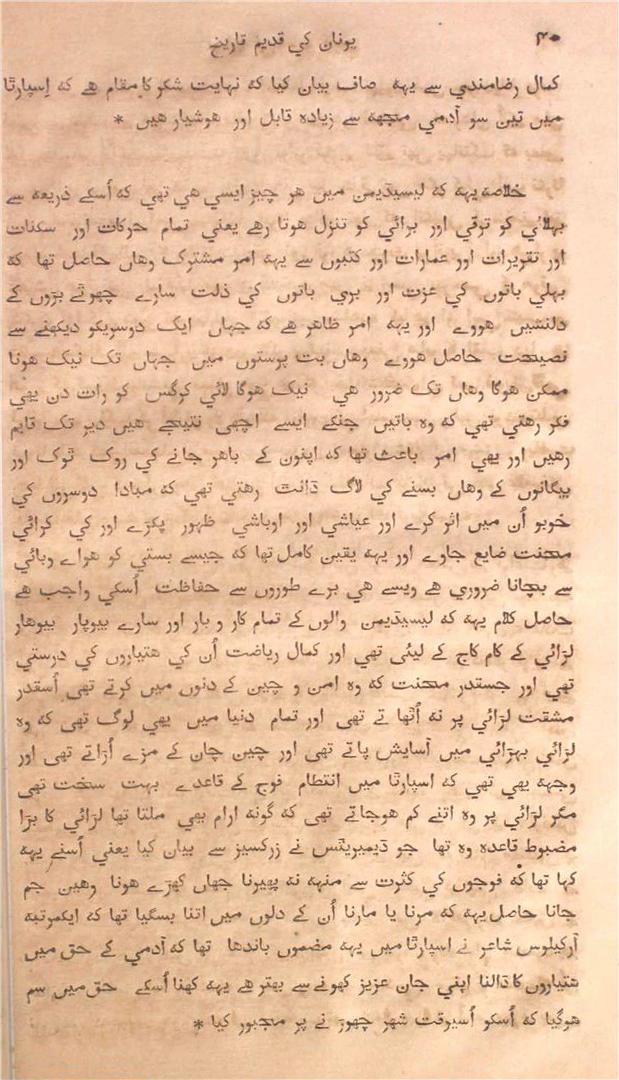 ۴۰ یونان کي قدیم تاریخ
کمال رضامندي سے یہہ صاف بیان کیا کہ نہایت شکر کا مقام ہے کہ اِسپارٹا
میں تین سو آدمي مجھہ سے زیادہ قابل اور ہوشیار ہیں *
خلاصہ یہہ کہ لیسیڈیمن میں ہر چیز ایسي ہي تھي کہ اُسکے ذریعہ سے
بہلائي کو ترقي اور برائي کو تنزل ہوتا رہے یعني تمام حرکات اور سکنات
اور تقریرات اور عمارات اور کتبوں سے یہہ امر مشترک وہاں حاصل تھا کہ
بہلي باتوں کي عزت اور بري باتوں کي ذلت سارے چھوٹے بڑوں کے
دلنشیں ہووے اور یہہ امر ظاہر ہے کہ جہاں ایک دوسریکو دیکھنے سے
نصیحت حاصل ہووے وہاں بت پرستوں میں جہاں تک نیک ہونا
ممکن ہوگا وہاں تک ضرور ہي نیک ہوگا لائي کرگس کو رات دن یہي
فکر رہتي تھي کہ وہ باتیں جنکے ایسے اچھي نتیجے ہیں دیر تک قایم
رہیں اور یہي امر باعث تھا کہ اپنوں کے باہر جانے کي روک ٹوک اور
بیگانوں کے وہاں بسنے کي لاگ ڈانٹ رہتي تھي کہ مبادا دوسروں کي
خوبو اُن میں اثر کرے اور عیاشي اور اوباشي ظہور پکڑے اور کي کرائي
محنت ضایع جاوے اور یہہ یقین کامل تھا کہ جیسے بستي کو ہواے وبائي
سے بچانا ضروري ہے ویسے ہي برے طوروں سے حفاظت اُسکي واجب ہے
حاصل کلام یہہ کہ لیسیڈیمن والوں کے تمام کار و بار اور سارے بیوپار بیوہار
لڑائي کے کام کاج کے لیئي تھي اور کمال ریاضت اُن کي ہتیاروں کي درستي
تھي اور جسقدر محنت کہ وہ امن و چین کے دنوں میں کرتے تھي اُسقدر
مشقت لڑائي پر نہ اُٹھا تے تھي اور تمام دنیا میں یہي لوگ تھي کہ وہ
لڑائي بہڑائي میں آسایش پاتے تھي اور چین چان کے مزے اُڑاتے تھي اور
وجہہ یہي تھي کہ اسپارٹا میں انتظام فوج کے قاعدے بہت سخت تھي
مگر لڑائي پر وہ اتنے کم ہوجاتے تھي کہ گونہ ارام بھي ملتا تھا لڑائي کا بڑا
مضبوط قاعدہ وہ تھا جو ڈیمیریٹس نے زرکسیز سے بیان کیا یعني اُسنے یہہ
کہا تھا کہ فوجوں کي کثرت سے منہہ نہ پھیرنا جہاں کھڑے ہونا وہیں جم
جانا حاصل یہہ کہ مرنا یا مارنا اُن کے دلوں میں اتنا بسگیا تھا کہ ایکمرتبہ
آرکیلوس شاعر نے اسپارٹا میں یہہ مضموں باندھا تھا کہ آدمي کے حق میں
ہتیاروں کا ڈالنا اپني جان عزیز کھونے سے بہتر ہے یہہ کہنا اُسکے حق میں سم
ہوگیا کہ اُسکو اُسیوقت شہر چھوڑ نے پر مجبور کیا *